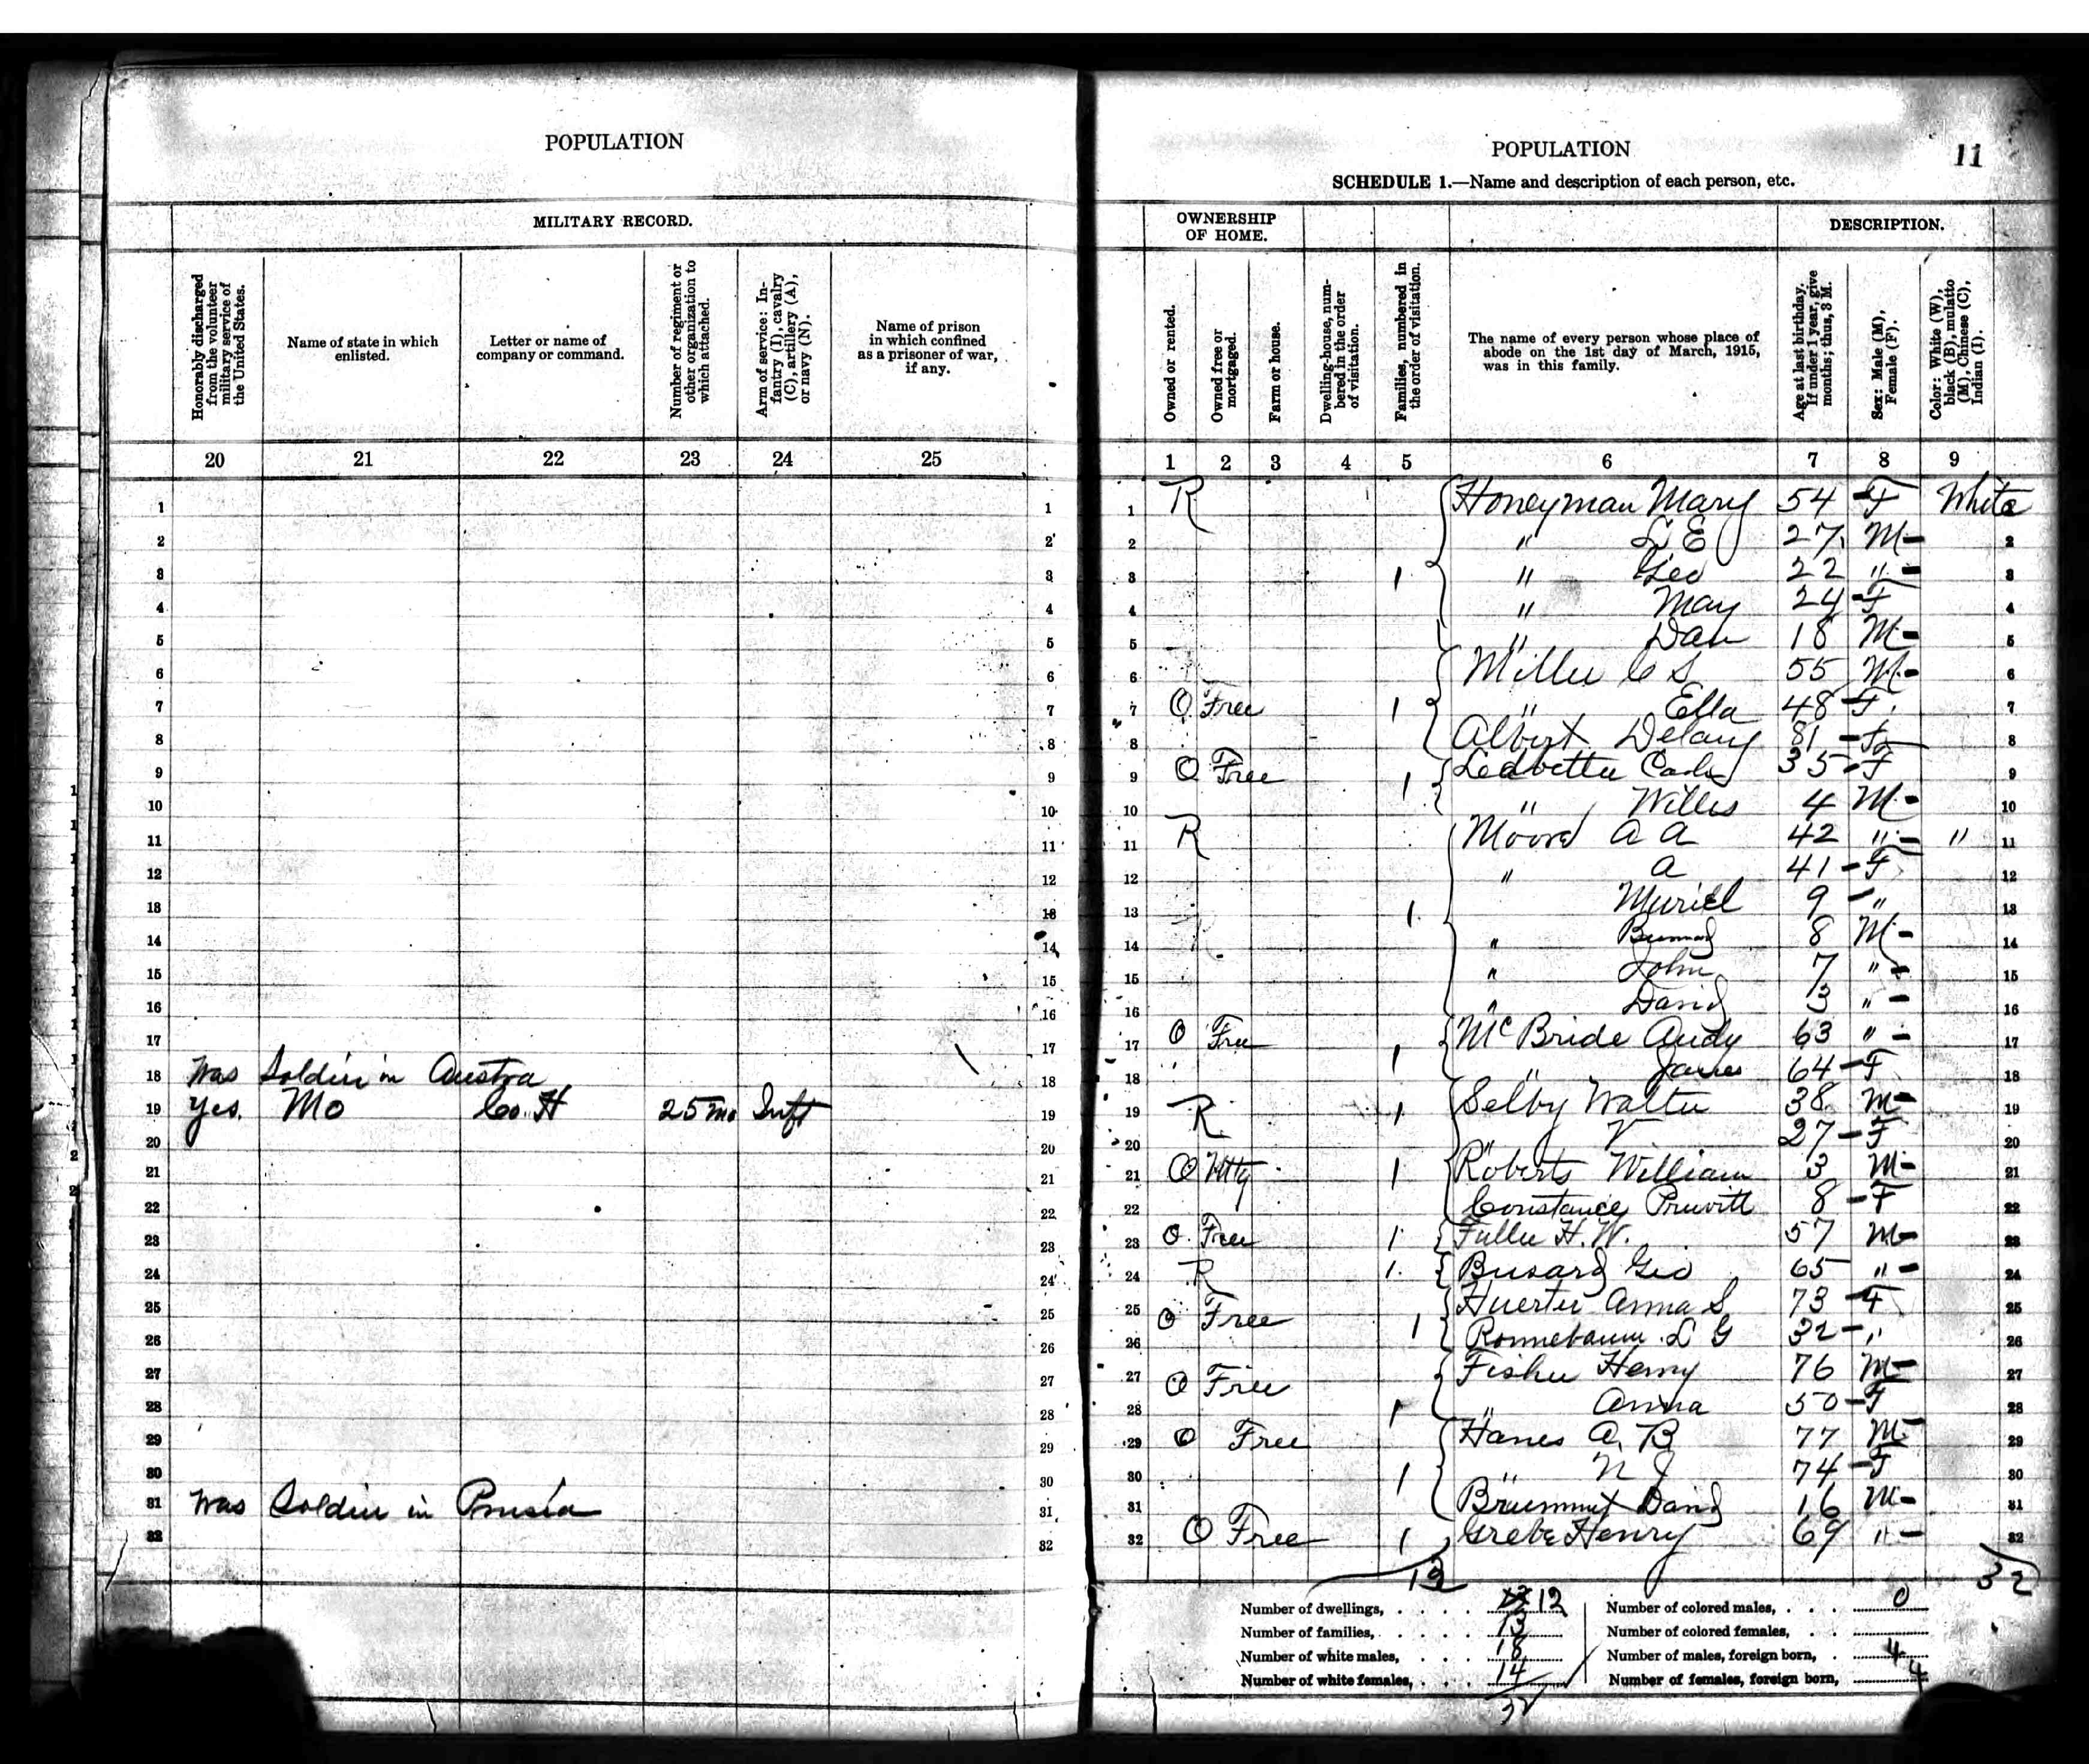 POPULATION
MILITARY RECORD.
Honorably discharged from the volunteer military service of the United States.
Name of state in which enlisted.
Letter or name of company or command.
Number of regiment or other organization to which attached.
Arm of service: Infantry (I), cavalry (C), artillery (A), or navy (N).
Name of prison in which confined as a prisoner of war, if any.
20 21 22 23 24 25
1 1
2 2
3 3
4 4
5 5
6 6
7 7
8 8
9 9
10 10
11 11
12 12
13 13
14 14
15 15
16 16
17 17
18 Was Soldier in Austra 18
19 Yes. Mo Co. H 25 Mo Inft 19
20 20
21 21
22 22
23 23
24 24
25 25
26 26
27 27
28 28
29 29
30 30
31 Was Soldier in Prusia 31
32 32
POPULATION 11
SCHEDULE 1.—Name and description of each person, etc.
OWNERSHIP OF HOME. DESCRIPTION.
Owned or rented.
Owned free or mortgaged.
Farm or house.
Dwelling-house, numbered in the order of visitation.
Families, numbered in the order of visitation.
The name of every person whose place of abode on the 1st day of March, 1915, was in this family.
Age at last birthday. If under 1 year, give months; thus, 3 M.
Sex: Male (M), Female (F).
Color: White (W), black (B), mulatto (M), Chinese (C), Indian (I).
1 2 3 4 5 6 7 8 9
1 R Honeyman Mary 54 F White
2 " L E 27 M 2
3 1 " Geo 22 " 3
4 " May 24 F 4
5 " Dan 18 M 5
6 Miller C S 55 M 6
7 O Free 1 " Ella 48 F 7
8 Albert Delany 81 F 8
9 O Free 1 Ledbetter 35 F 9
10 " Willis 4 M 10
11 R Moore A A 42 " " 11
12 " A 41 F 12
13 1 Muriel 9 " 13
14 " 8 M 14
15 " John 7 " 15
16 " David 3 " 16
17 O Free 1 McBride Andy 63 " 17
18 " 64 F 18
19 R 1 Selby Walter 38 M 19
20 " V 27 F 20
21 O Mtg 1 Roberts William 3 M 21
22 Constance Pruvitt 8 F 22
23 O Free 1 Fuller H. W. 57 M 23
24 R 1 Busard Geo 65 " 24
25 O Free Huerter Anna S 73 F 25
26 1 Ronnebaum L G 32 " 26
27 O Free Fisher Henry 76 M 27
28 1 " Anna 50 F 28
29 O Free Hanes A. B 77 M 29
30 1 " N J 74 F 30
31 Brummet David 16 M 31
32 O Free 1 Grebe Henry 69 " 32
13 32
Number of dwellings, 12 Number of colored males, 0
Number of families, 13 Number of colored females,
Number of white males, 18 Number of males, foreign born, 4
Number of white females, 14 Number of females, foreign born, 4
32